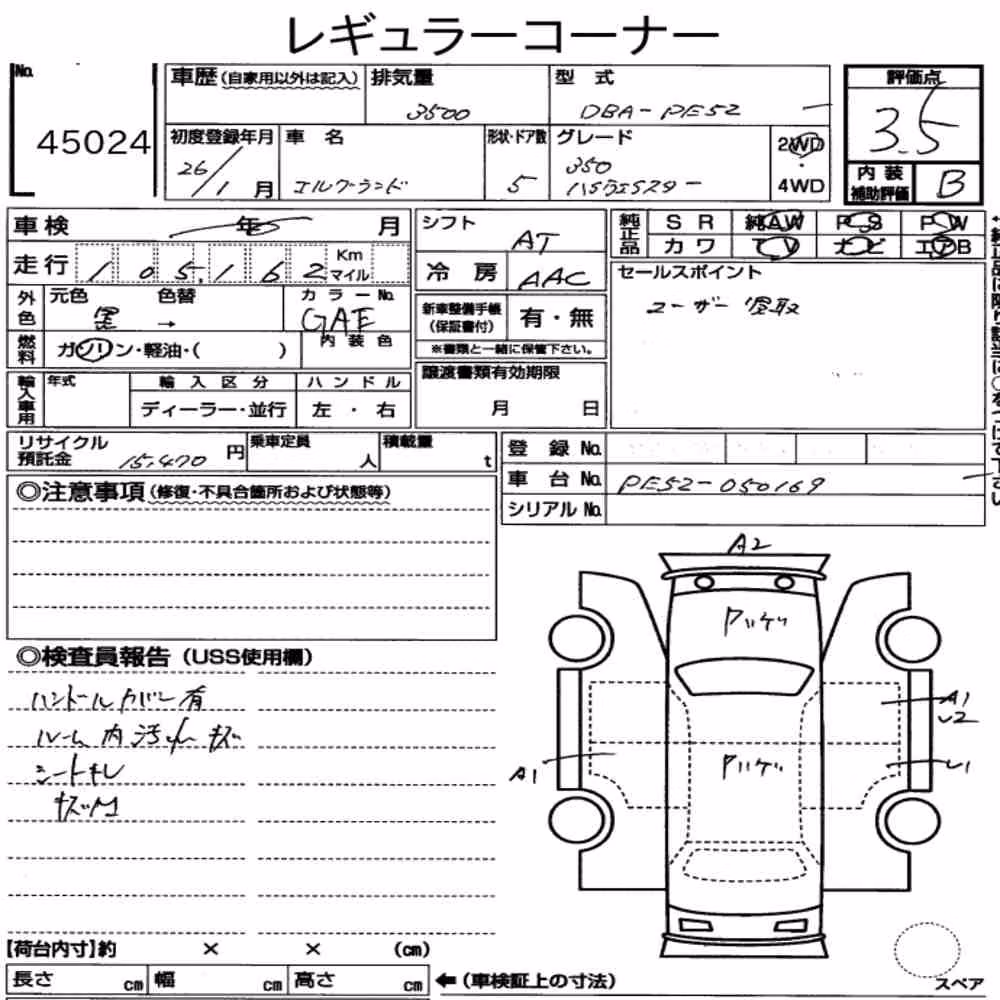 レギュラーコーナー
No.
45024
車歴(自家用以外は記入)
排気量
3500
型 式
DBA-PE52
評価点
3.5
初度登録年月
26/1月
車 名
エルグランド
形状・ドア数
5
グレード
350
ハイウェイスター
2WD
・
4WD
内 装
補助評価
B
車検
年 月
シフト
AT
純正品
S R 純AW P S P W
カ ワ T V ナ ビ エアB
走行 105,162 Km
マイル
冷 房 AAC
セールスポイント
ユーザー買取
外色
元色 色替
黒 →
カ ラ ー No.
GAE
新車整備手帳
(保証書付)
有・無
※書類と一緒に保管下さい。
燃料
ガソリン・軽油・( )
内 装 色
譲渡書類有効期限
月 日
輸入車用
年式
輸 入 区 分
ディーラー・並行
ハ ン ド ル
左 ・ 右
リサイクル
預託金 15,470 円
乗車定員
人
積載量
t
登 録 No.
車 台 No. PE52-050169
シリアル No.
◎注意事項(修復・不具合箇所および状態等)
◎検査員報告(USS使用欄)
ハンドルカバー有
ルーム内汚れ キズ
シートキレ
A2
Pハゲ
Pハゲ
A1
A1
U2
U1
【荷台内寸】約 × × (cm)
長さ cm 幅 cm 高さ cm
←(車検証上の寸法)
スペア